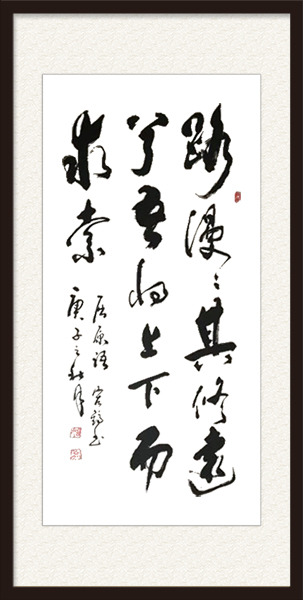 路漫漫其修远
兮吾将上下而
求索
屈原语
庚子之秋月